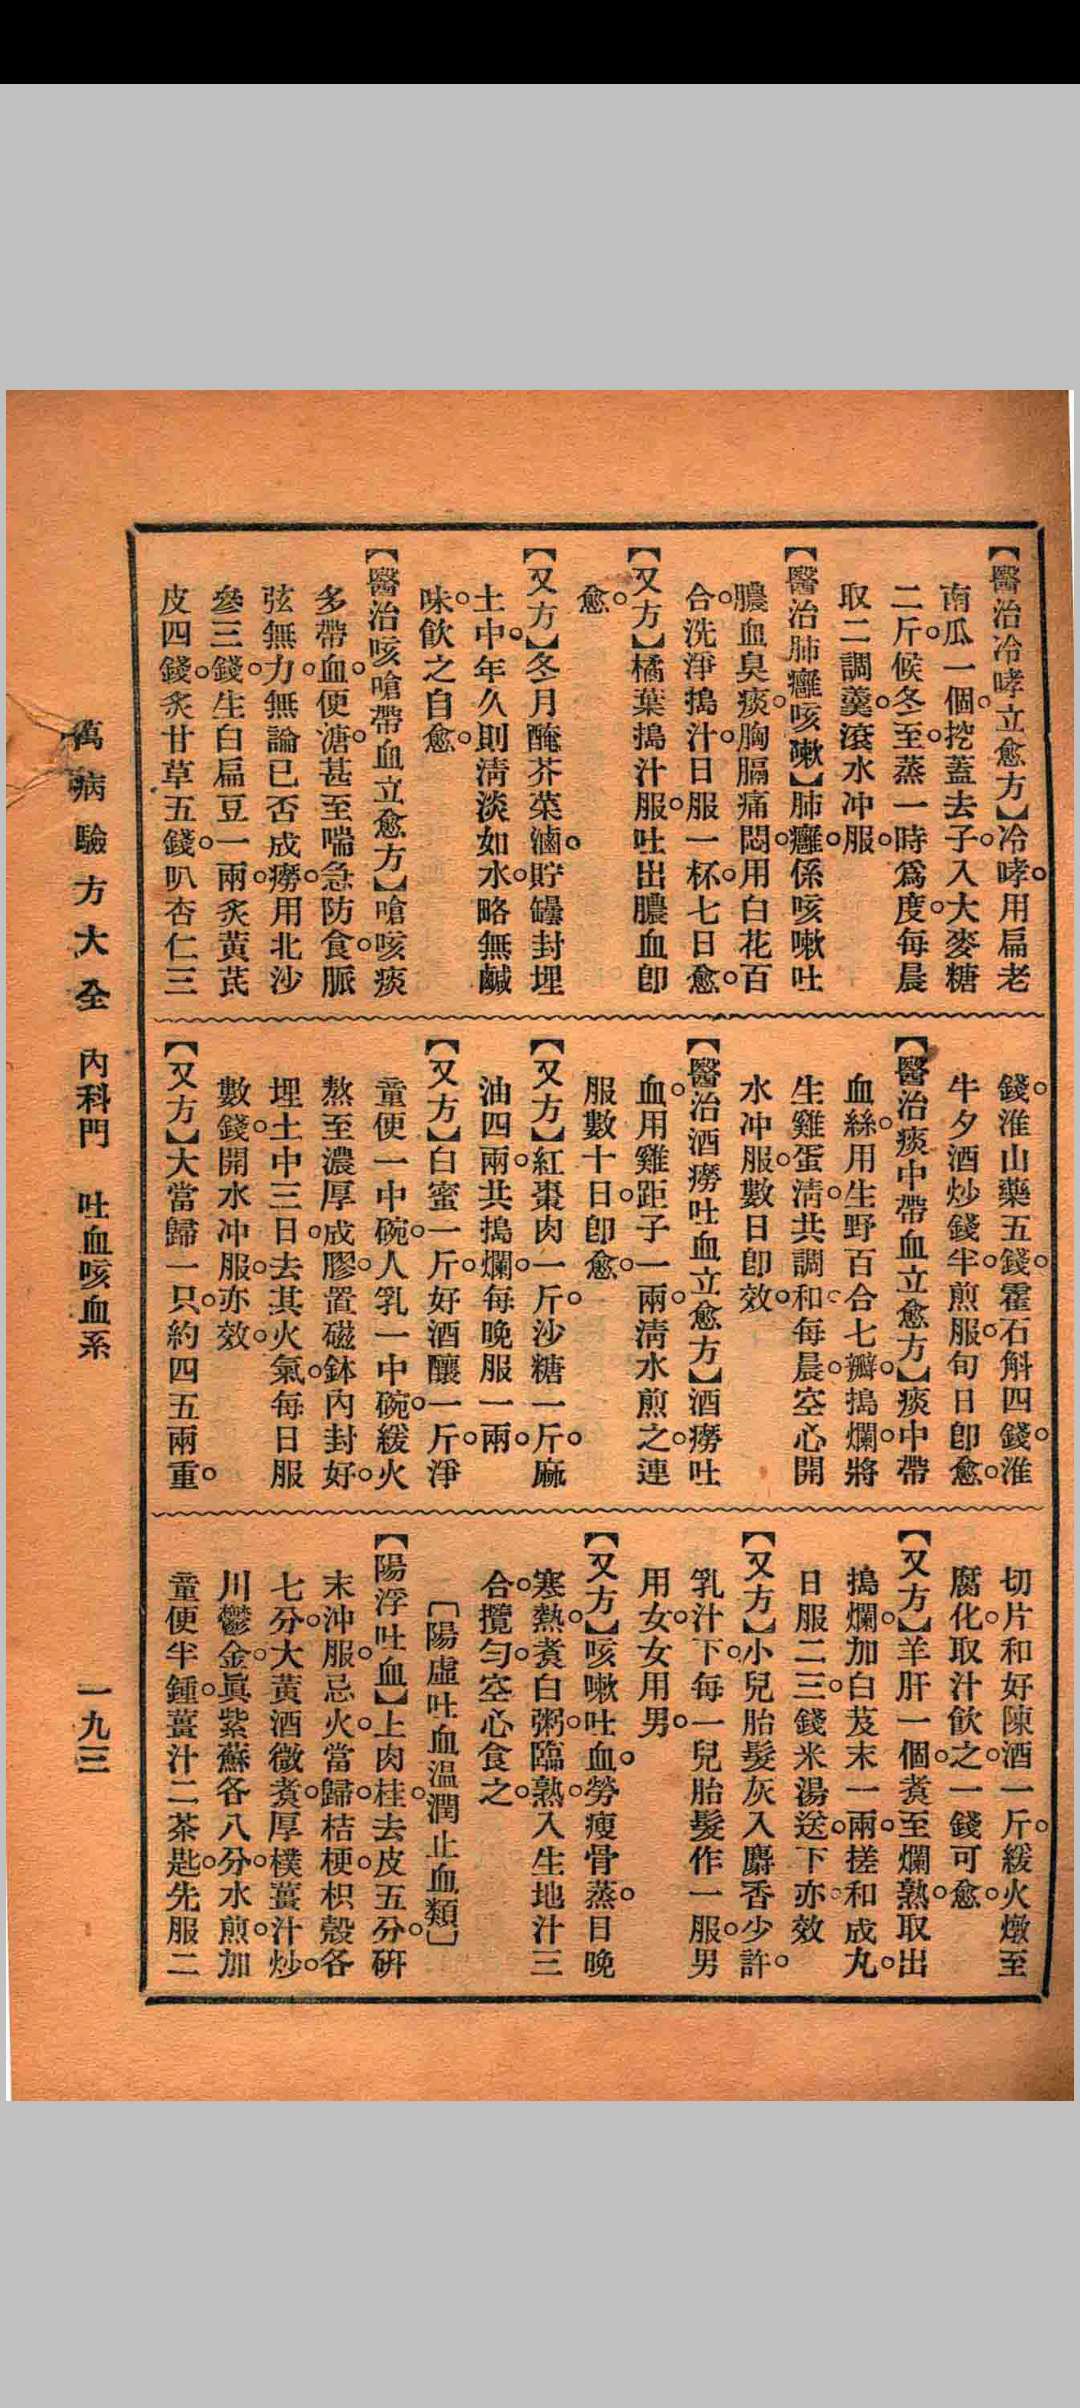 【醫治冷哮立愈方】冷哮。用扁老
南瓜一個。挖蓋去子。入大麥糖
二斤。候冬至。蒸一時爲度。每晨
取二調羹。滾水冲服。
【醫治肺癰咳嗽】肺癰。係咳嗽吐
膿血臭痰。胸膈痛悶。用白花百
合。洗淨搗汁。日服一杯。七日愈。
【又方】橘葉搗汁服。吐出膿血即
愈。
【又方】冬月醃芥菜滷。貯罎封埋
土中。年久則淸淡如水。略無鹹
味。飮之自愈。
【醫治咳嗆帶血立愈方】嗆咳痰
多帶血。便溏。甚至喘急防食。脈
弦無力。無論已否成癆。用北沙
參三錢。生白扁豆一兩。炙黃芪
皮四錢。炙甘草五錢。叭杏仁三
錢。淮山藥五錢。霍石斛四錢。淮
牛夕酒炒錢半。煎服。旬日即愈。
【醫治痰中帶血立愈方】痰中帶
血絲。用生野百合七瓣。搗爛。將
生雞蛋淸。共調和。每晨。空心開
水冲服。數日即效。
【醫治酒癆吐血立愈方】酒癆吐
血。用雞距子一兩。淸水煎之。連
服數十日。即愈。
【又方】紅棗肉一斤。沙糖一斤。麻
油四兩。共搗爛。每晚服一兩。
【又方】白蜜一斤。好酒釀一斤。淨
童便一中碗。人乳一中碗。緩火
熬至濃厚成膠。置磁鉢內封好。
埋土中三日。去其火氣。每日服
數錢。開水冲服。亦效。
【又方】大當歸一只。約四五兩重。
切片和好陳酒一斤。緩火燉至
腐化。取汁飮之。一錢可愈。
【又方】羊肝一個。煑至爛熟。取出
搗爛。加白芨末一兩。搓和成丸。
日服二三錢。米湯送下。亦效
【又方】小兒胎髮灰入麝香少許。
乳汁下。每一兒胎髮作一服。男
用女。女用男。
【又方】咳嗽吐血。勞瘦骨蒸。日晚
寒熱。煑白粥。臨熟。入生地汁三
合。攬勻。空心食之。
〔陽虛吐血溫潤止血類〕
【陽浮吐血】上肉桂。去皮五分。硏
末沖服。忌火。當歸。桔梗。枳殼。各
七分。大黃酒微煑。厚樸薑汁炒。
川鬱金。眞紫蘇各八分。水煎。加
童便半鍾。薑汁二茶匙。先服二
萬病驗方大全　內科門　吐血咳血系
一九三